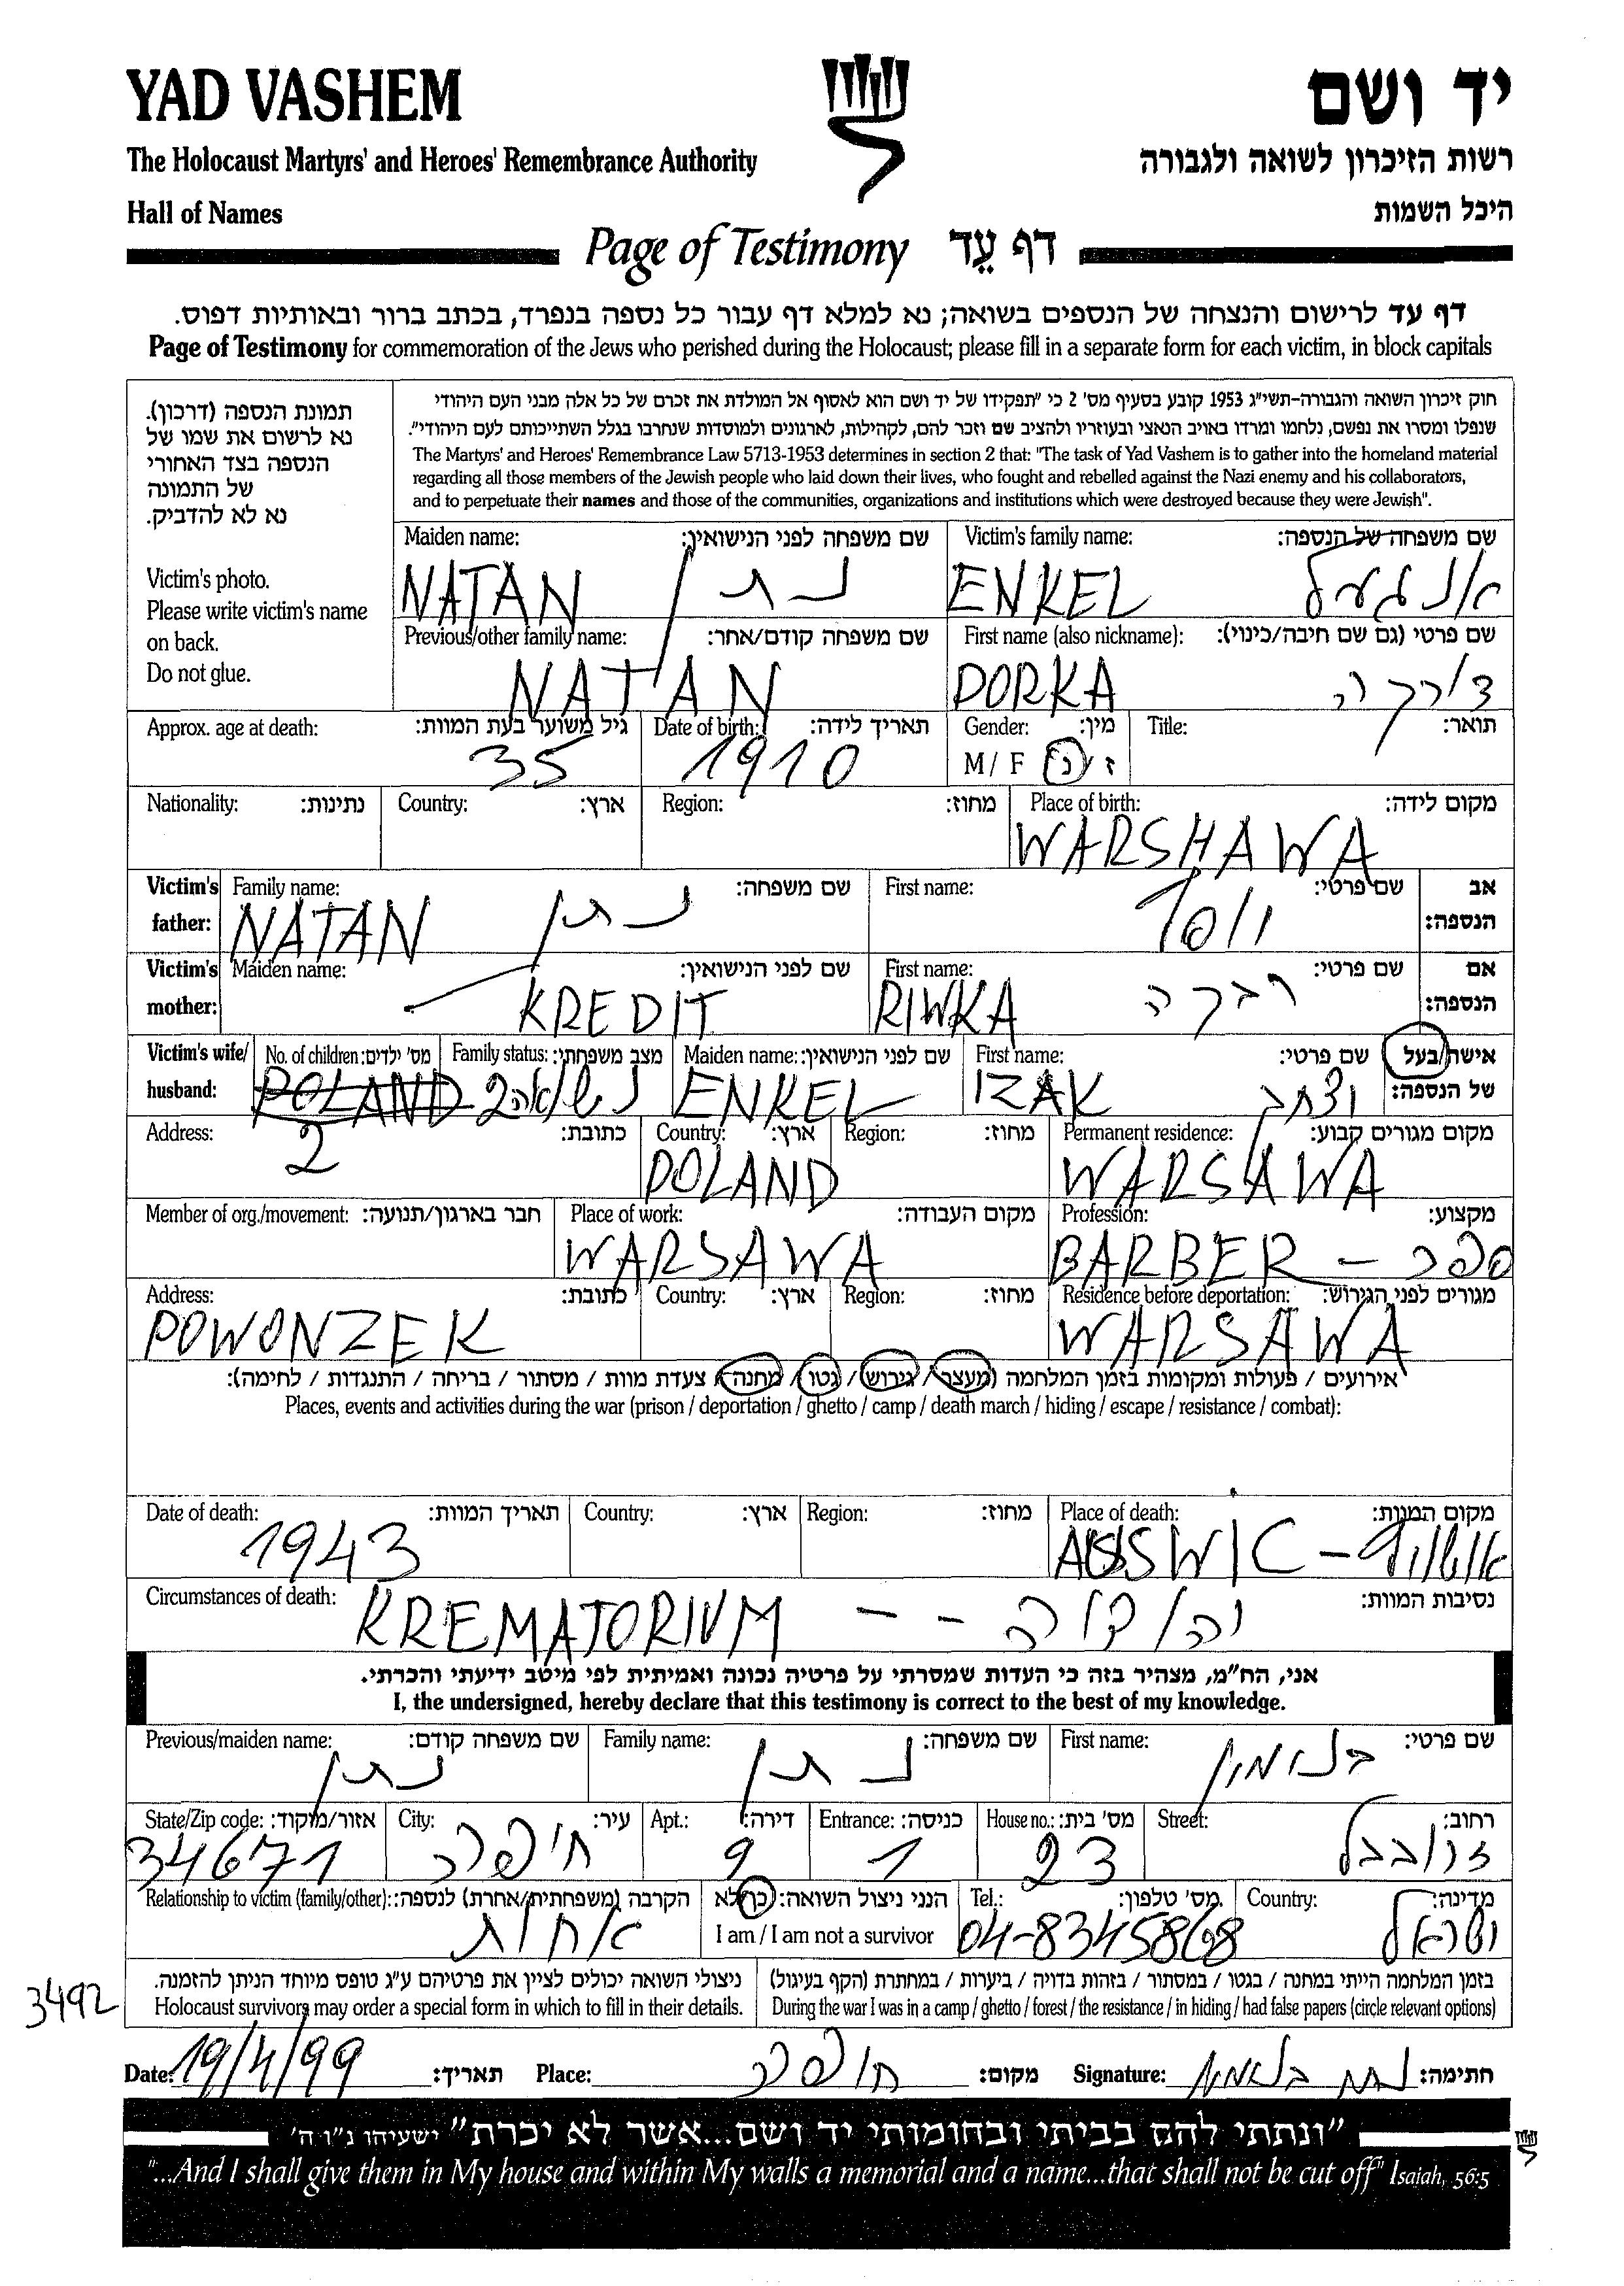 YAD VASHEM יד ושם
The Holocaust Martyrs' and Heroes' Remembrance Authority רשות הזיכרון לשואה ולגבורה
Hall of Names היכל השמות
Page of Testimony דף עֵד
דף עד לרישום והנצחה של הנספים בשואה; נא למלא דף עבור כל נספה בנפרד, בכתב ברור ובאותיות דפוס.
Page of Testimony for commemoration of the Jews who perished during the Holocaust; please fill in a separate form for each victim, in block capitals
תמונת הנספה (דרכון).
נא לרשום את שמו של
הנספה בצד האחורי
של התמונה
נא לא להדביק.
Victim's photo.
Please write victim's name
on back.
Do not glue.
חוק זיכרון השואה והגבורה-תשי"ג 1953 קובע בסעיף מס' 2 כי "תפקידו של יד ושם הוא לאסוף אל המולדת את זכרם של כל אלה מבני העם היהודי
שנפלו ומסרו את נפשם, נלחמו ומרדו באויב הנאצי ובעוזריו ולהציב שם וזכר להם, לקהילות, לארגונים ולמוסדות שנחרבו בגלל השתייכותם לעם היהודי".
The Martyrs' and Heroes' Remembrance Law 5713-1953 determines in section 2 that: "The task of Yad Vashem is to gather into the homeland material
regarding all those members of the Jewish people who laid down their lives, who fought and rebelled against the Nazi enemy and his collaborators,
and to perpetuate their names and those of the communities, organizations and institutions which were destroyed because they were Jewish".
Maiden name: שם משפחה לפני הנישואין: Victim's family name: שם משפחה של הנספה:
NATAN נתן ENKEL
Previous/other family name: שם משפחה קודם/אחר: First name (also nickname): שם פרטי (גם שם חיבה/כינוי):
NATAN DORKA דורקה
Approx. age at death: גיל משוער בעת המוות: Date of birth: תאריך לידה: Gender: מין: Title: תואר:
35 1910 M/ F ז / נ
Nationality: נתינות: Country: ארץ: Region: מחוז: Place of birth: מקום לידה:
WARSHAWA
Victim's Family name: שם משפחה: First name: שם פרטי: אב
father: NATAN נתן יוסף הנספה:
Victim's Maiden name: שם לפני הנישואין: First name: שם פרטי: אם
mother: KREDIT RIWKA רבקה הנספה:
Victim's wife/ No. of children: מס' ילדים: Family status: מצב משפחתי: Maiden name: שם לפני הנישואין: First name: שם פרטי: אישה/בעל
husband: POLAND נשואה 2 ENKEL IZAK יצחק של הנספה:
Address: כתובת: Country: ארץ: Region: מחוז: Permanent residence: מקום מגורים קבוע:
2 POLAND WARSAWA
Member of org./movement: חבר בארגון/תנועה: Place of work: מקום העבודה: Profession: מקצוע:
WARSAWA BARBER - ספר
Address: כתובת: Country: ארץ: Region: מחוז: Residence before deportation: מגורים לפני הגירוש:
POWONZEK WARSAWA
אירועים / פעולות ומקומות בזמן המלחמה (מעצר / גירוש / גטו / מחנה / צעדת מוות / מסתור / בריחה / התנגדות / לחימה):
Places, events and activities during the war (prison / deportation / ghetto / camp / death march / hiding / escape / resistance / combat):
Date of death: תאריך המוות: Country: ארץ: Region: מחוז: Place of death: מקום המוות:
1943 AUSWIC -
Circumstances of death: נסיבות המוות:
KREMATORIUM - -
אני, הח"מ, מצהיר בזה כי העדות שמסרתי על פרטיה נכונה ואמיתית לפי מיטב ידיעתי והכרתי.
I, the undersigned, hereby declare that this testimony is correct to the best of my knowledge.
Previous/maiden name: שם משפחה קודם: Family name: שם משפחה: First name: שם פרטי:
נתן נתן בנימין
State/Zip code: אזור/מיקוד: City: עיר: Apt.: דירה: Entrance: כניסה: House no.: מס' בית: Street: רחוב:
34671 חיפה 9 1 23 זרובבל
Relationship to victim (family/other): הקרבה (משפחתית/אחרת) לנספה: הנני ניצול השואה: כן/לא Tel.: מס' טלפון: Country: מדינה:
אחות I am / I am not a survivor 04-8345868 ישראל
ניצולי השואה יכולים לציין את פרטיהם ע"ג טופס מיוחד הניתן להזמנה. בזמן המלחמה הייתי במחנה / בגטו / במסתור / בזהות בדויה / ביערות / במחתרת (הקף בעיגול)
3492 Holocaust survivors may order a special form in which to fill in their details. During the war I was in a camp / ghetto / forest / the resistance / in hiding / had false papers (circle relevant options)
Date: 19/4/99 תאריך: Place: חיפה מקום: Signature: נתן בנימין חתימה:
"ונתתי להם בביתי ובחומותי יד ושם...אשר לא יכרת" ישעיהו נ"ו ה'
"...And I shall give them in My house and within My walls a memorial and a name...that shall not be cut off" Isaiah, 56:5